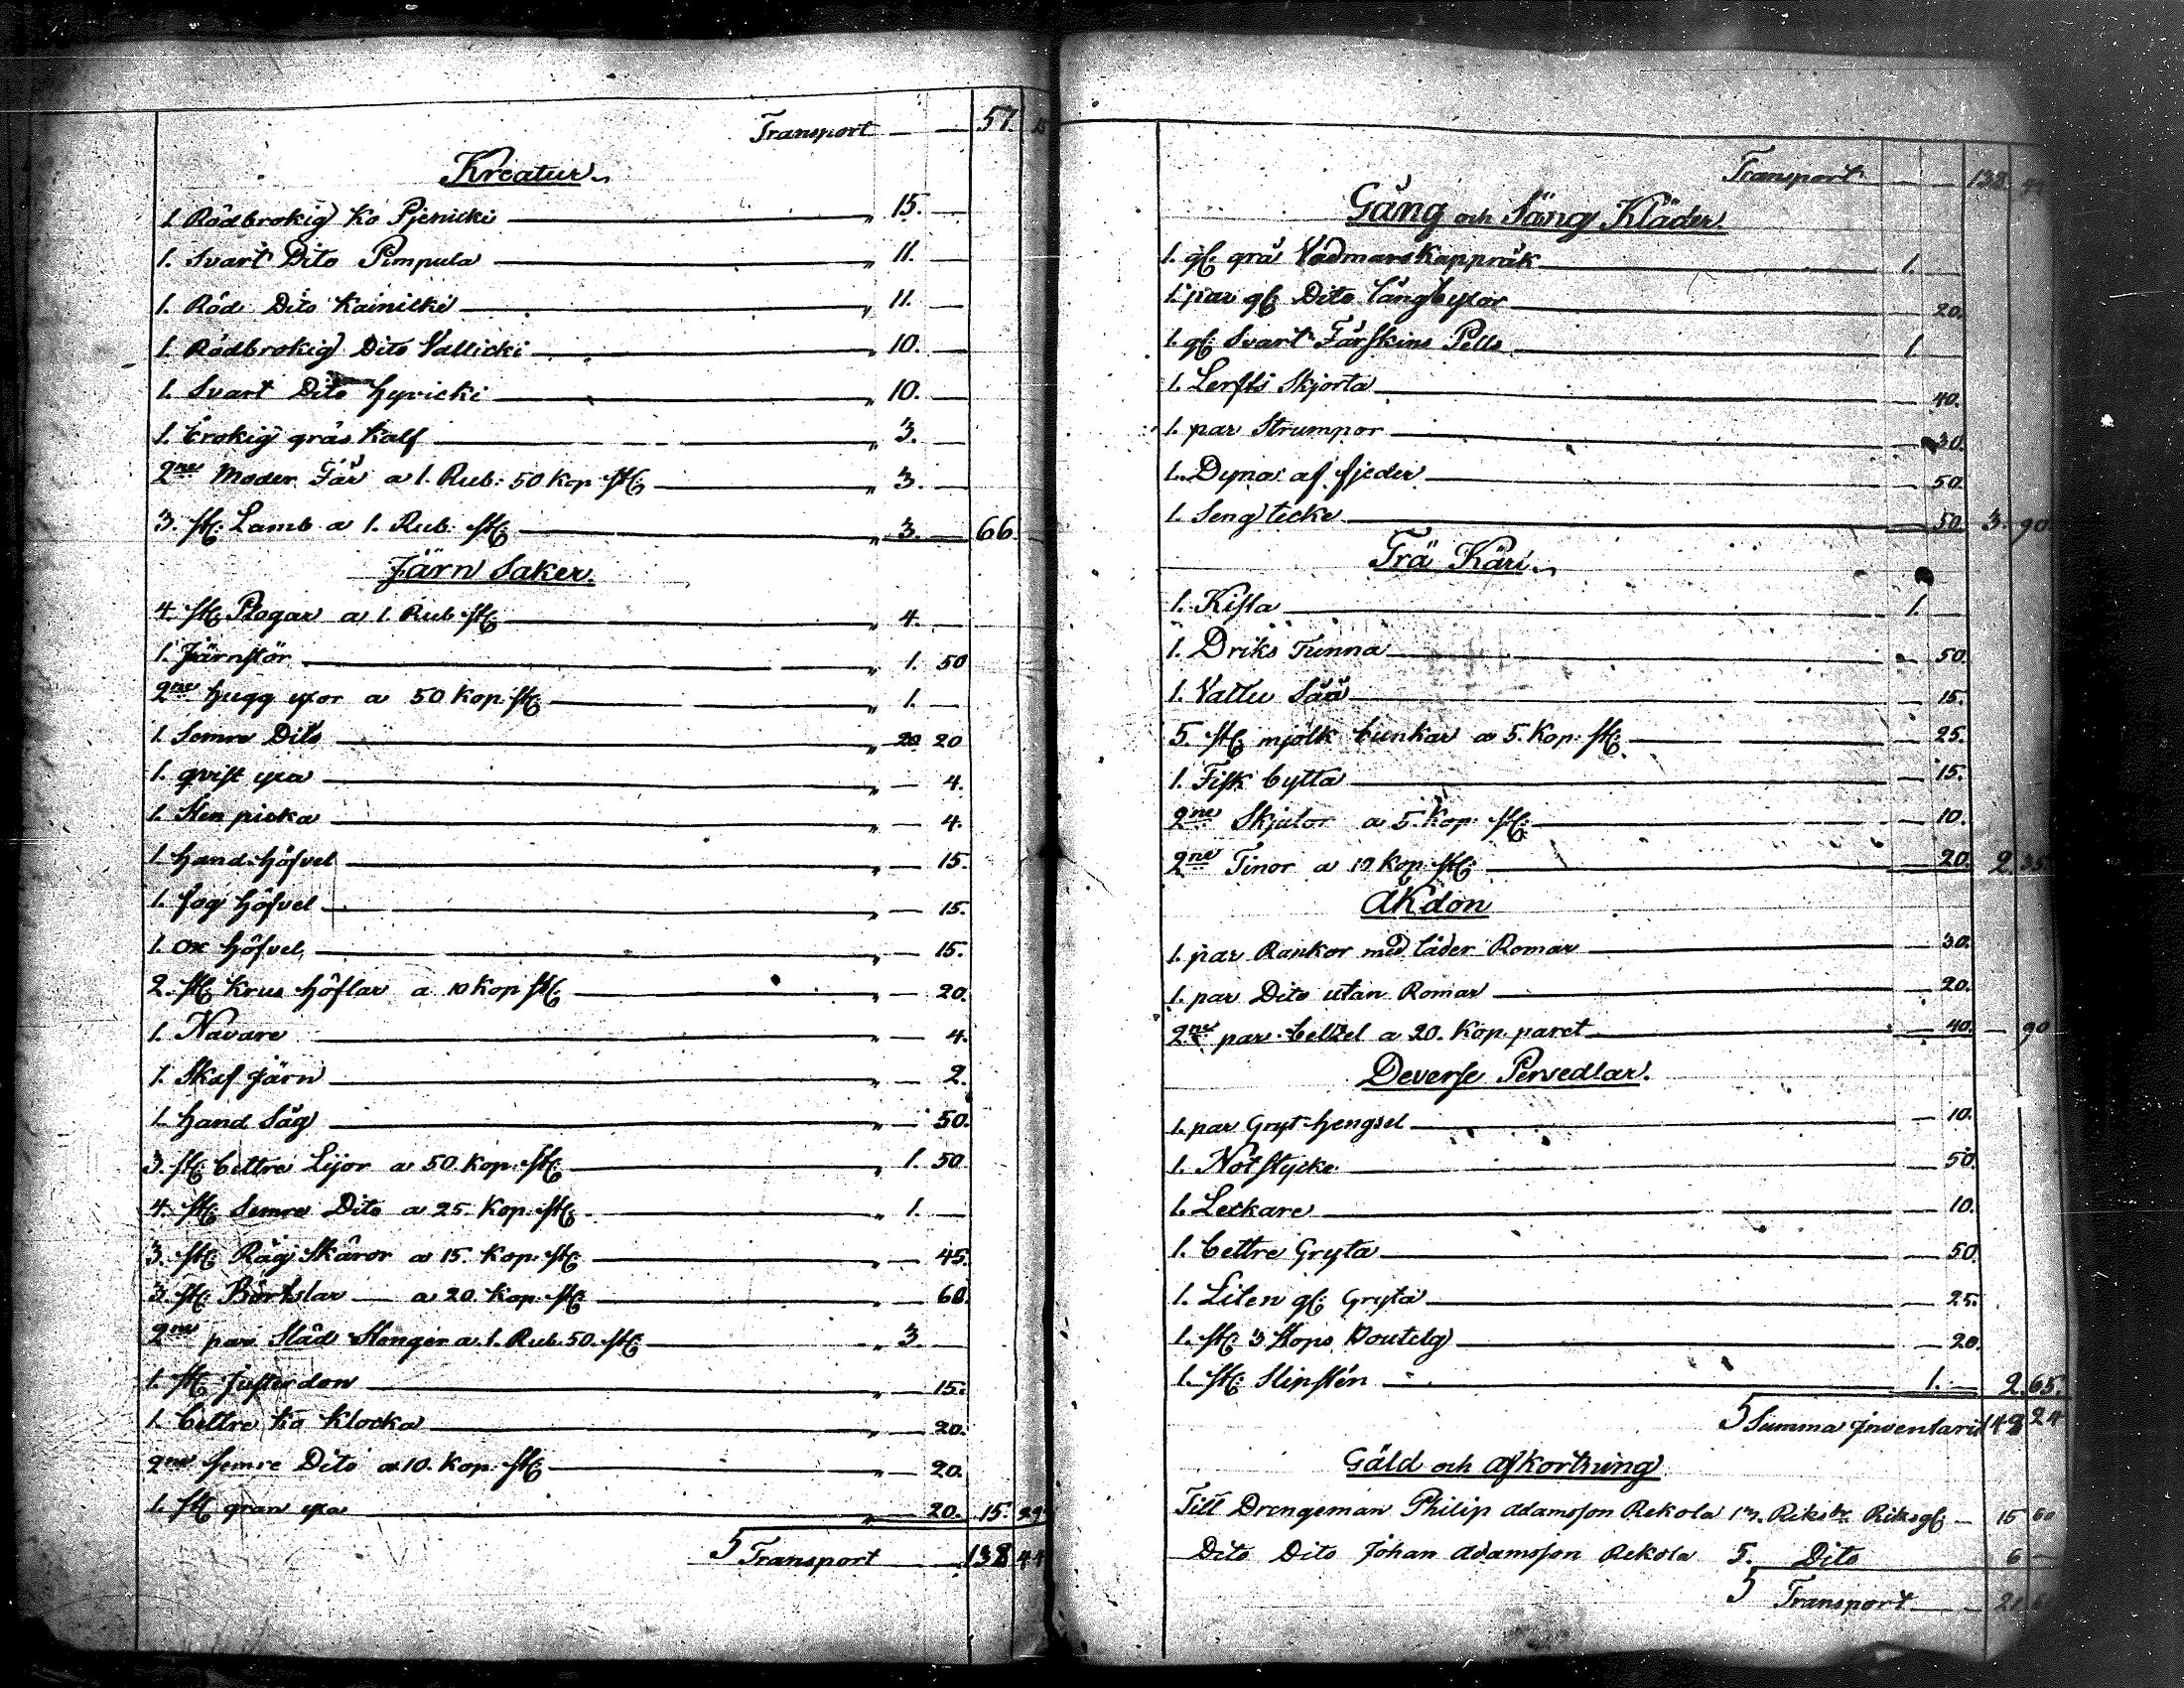 Transport — — 57. 15
Kreatur
1 Rödbrokig Ko Pjenicki — " 15. —
1. Svart Dito Pimpula — " 11. —
1. Röd Dito Kainicki — " 11. —
1. Rödbrokig Dito Vallicki — " 10. —
1. Svart Dito Hyvicki — " 10. —
1. brokig gräs Kalf — " 3. —
2ne Moder Får a 1. Rub: 50 Kop St: — " 3. —
3. St: Lamb a 1. Rub. St: — " 3. — 66 —
Järn Saker.
4. St: Plogar a 1. Rub St: — " 4. —
1. Järnstör — " 1. 50
2ne hugg yxor a 50 Kop: St: — " 1. —
1. Semre Dito — " 20 20
1. qvist yxa — " — 4.
1. Sten picka — " — 4.
1. Hand höfvel — " — 15.
1. fog höfvel — " — 15.
1. Ox höfvel — " — 15.
2. St: Krus höflar a 10 Kop St: — " — 20.
1. Navare — " — 4.
1. Skaf järn — " — 2.
1. Hand Såg — " — 50.
3. St: bettre Lijor a 50. Kop: St: — " 1. 50
4. St: Semre Dito a 25. Kop: St: — " 1. —
3. St: Råg Skäror a 15. Kop: St: — " — 45.
3. St: — a 20. Kop: St: — " — 60.
2ne par Släd Stenger a. 1. Rub. 50. St: — " 3. —
1. St: — " — 15.
1. bettre Ko Klocka — " — 20.
2ne semre Dito a 10. Kop. St: — " — 20.
1. St: gran yxa — " — 20. 15. 29
S Transport — — 138 44
Transport — — 138. 44
Gång och Säng Kläder.
1. gl: grå Vadmars Kappråk — 1. —
1. par gl: Dito långbyxor — 20.
1. gl: Svart Fårskins Pells — 1. —
1. Lerfts Skjorta — 40.
1. par Strumpor — 30.
1. Dyna af fjeder — 50.
1. Seng tecke — 50. 3. 90.
Trä Käril
1. Kista — 1. —
1. Driks Tunna — 50.
1. Vattu Såå — 15.
5. St: mjölk bunkar a 5. Kop: St: — 25.
1. Fisk bytta — 15.
2ne Skjulor a 5. Kop: St: — 10.
2ne Tinor a 10 Kop: St: — 20. 2. 35
Åkdon
1. par Rankor med läder Romar — 30.
1. par Dito utan Romar — 20.
2ne par betzel a 20. Kop. paret — 40. — 90
Deverse Persedlar.
1. par Gryt hengsel — 10.
1. Notstycke — 50.
1. Leckare — 10.
1. bettre Gryta — 50.
1. Liten gl: Gryta — 25.
1. St: 3 Stops — 20.
1. St: Slipsten — 1. — 2. 65.
S Summa Inventarii 148 24
Gäld och afkortning
Till Drengeman Philip Adamsson Rekola 13. Riksdr Riksgl: — 15 60
Dito Dito Johan Adamsson Rekola 5. Dito 6 —
S Transport — — 21 60